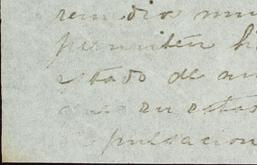 remedio mu
permiten h
estado de mi
que en estas
pulsacion